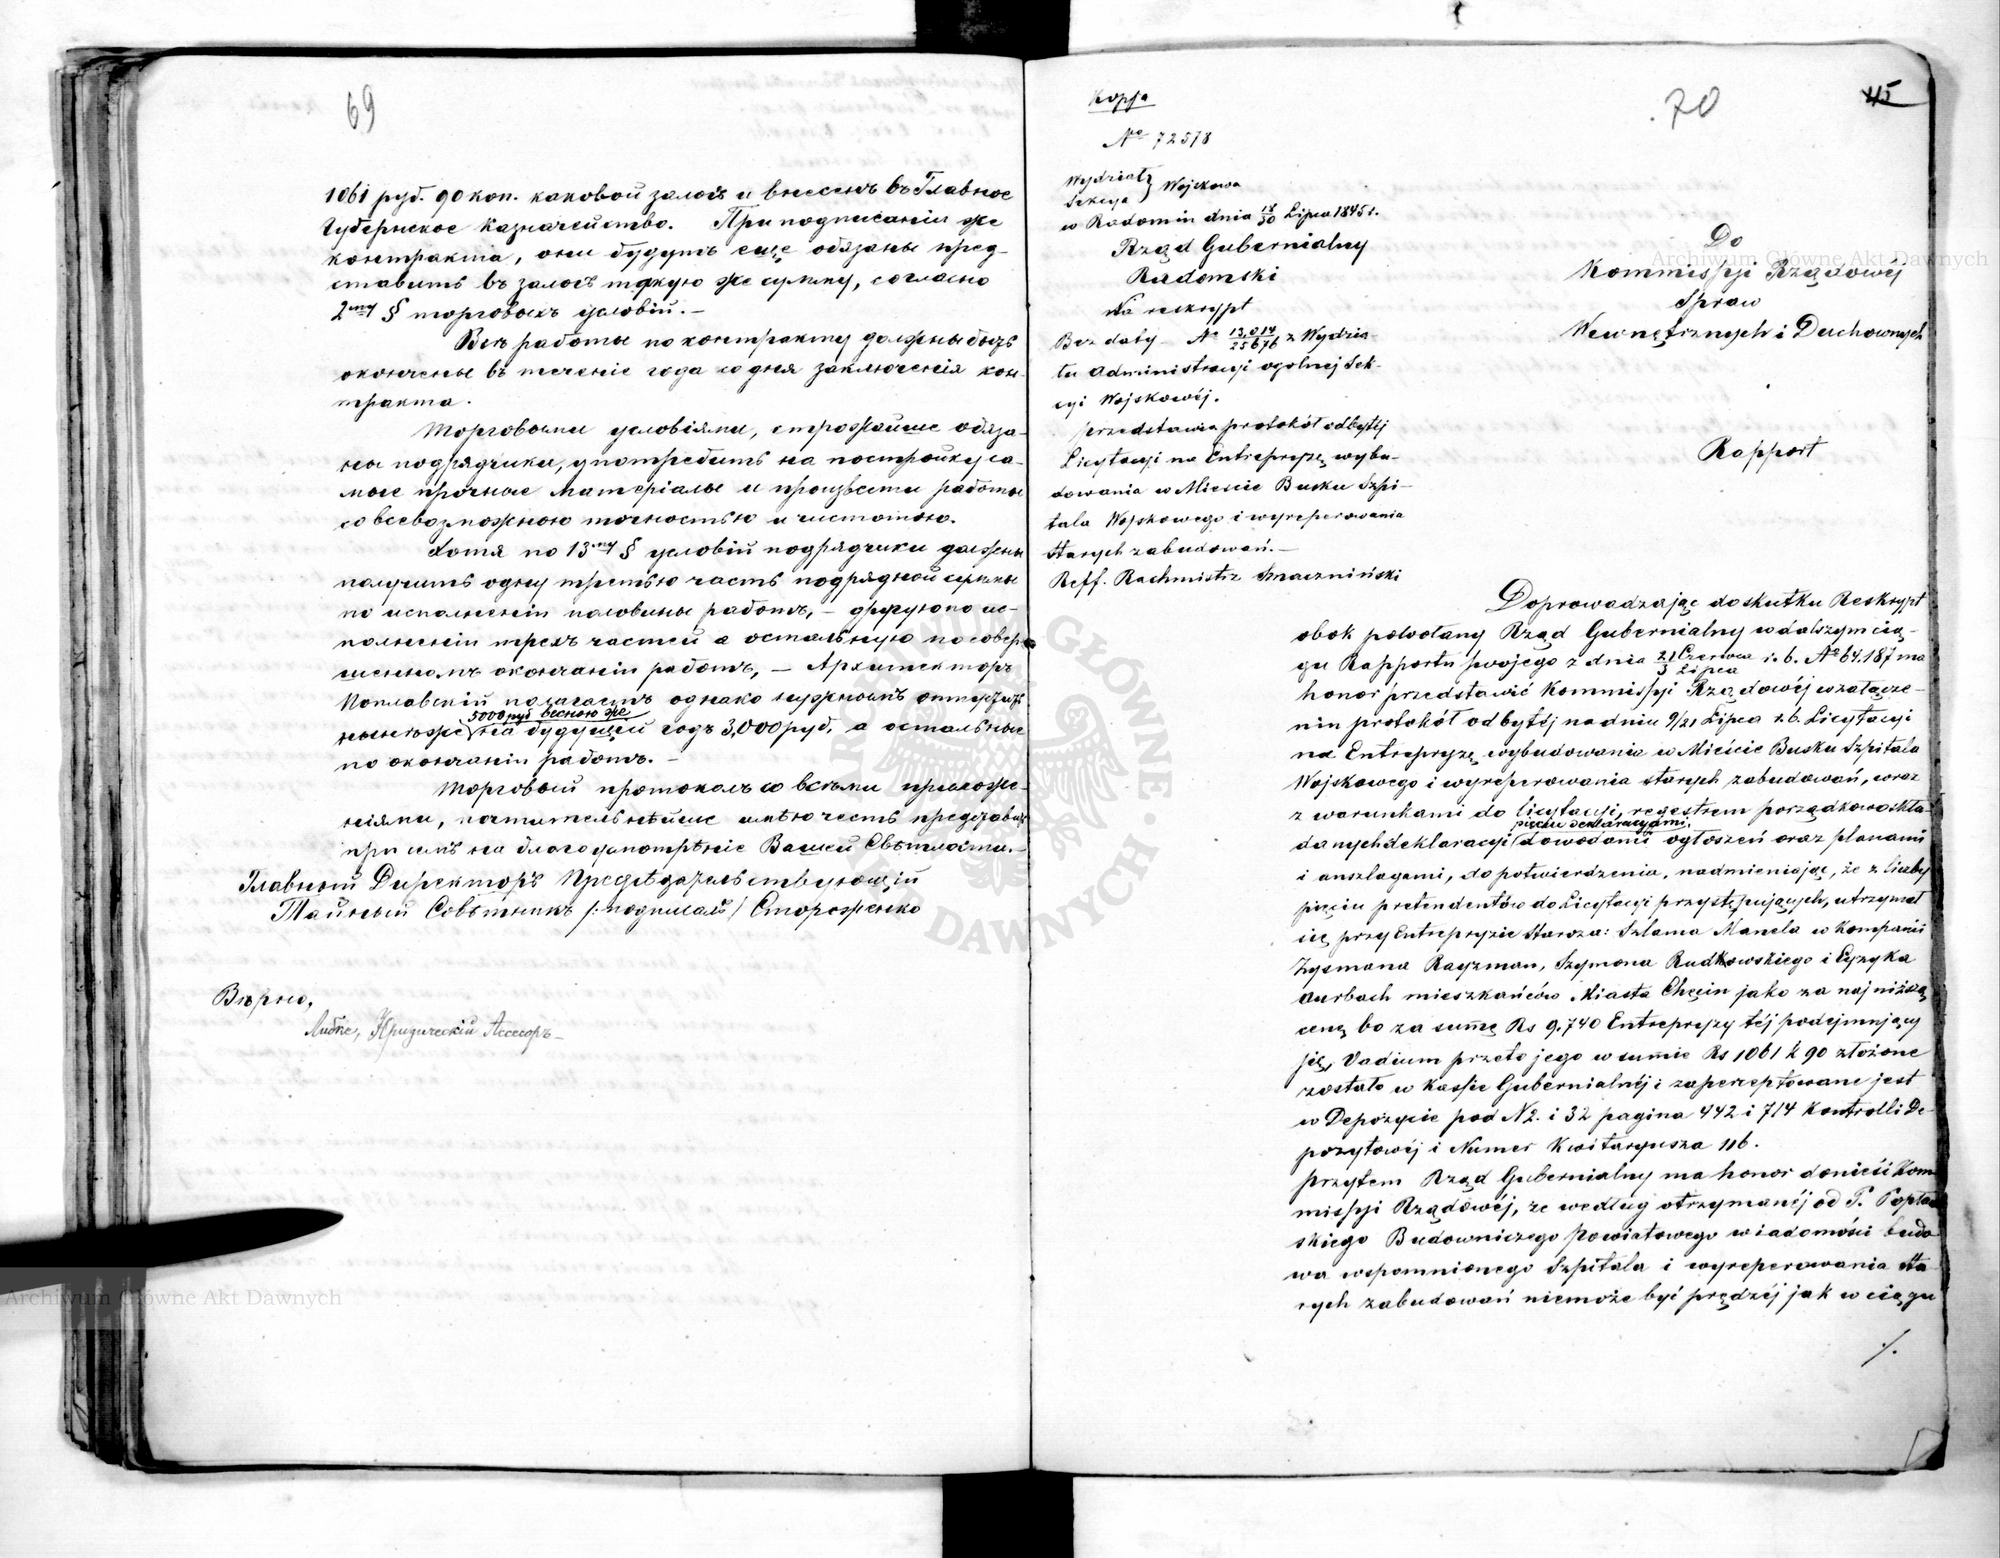 69
1061 руб. 90 коп. каковой залогъ и внесенъ въ Главное
Губернское Казначейство. При подписаніи же
контракта, они будутъ еще обязаны пред-
ставить въ залогъ такую же сумму, согласно
2му § торговыхъ условій.-
Всѣ работы по контракту должны быть
окончены въ теченіе года со дня заключенія кон-
тракта.
Торговыми условіями, строжайше обяза-
ны подрядчики, употребить на постройку са-
мые прочные матеріалы и произвести работы
со всевозможною точностью и чистотою.
Хотя по 13му § условій подрядчики должны
получить одну третью часть подрядной суммы
по исполненіи половины работъ, - другую по ис-
полненіи трехъ частей а остальную по совер-
шенномъ окончаніи работъ, - Архитекторъ
Поплавскій полагаетъ однако нужнымъ
5000 руб весною же
нынѣ же на будущій годъ 3,000 руб. а остальные
по окончаніи работъ. -
Торговый протоколъ со всѣми приложе-
ніями, почтительнѣйше имѣю честь представить
при семъ на благоусмотрѣніе Вашей Свѣтлости.-
Главный Директоръ Предсѣдательствующій
Тайный Совѣтникъ /:подписалъ/ Стороженко
Вѣрно,
Юридическій Ассесоръ-
70
45
Kopja
No 72578
Wydział } Wojskowa
Sekcya
w Radomiu dnia 18/30 Lipca 1845 r.
Rząd Gubernialny
Radomski
Na reskrypt
Bez daty - No 13,014/25676 z Wydzia-
łu Administracyi ogolnej Sek-
cyi Wojskowéj.
przedstawia protokół odbytej
Licytacyi na Entrepryzę wybu-
dowania w Mieście Busku Szpi-
tala Wojskowego i wyreperowania
starych zabudowań.-
Reff. Rachmistrz Smaczniński
Do
Kommissyi Rządowéj
Spraw
Wewnętrznych i Duchownych
Rapport
Doprowadzając do skutku Reskrypt
obok powołany Rząd Gubernialny w dalszym cią-
gu Rapportu swojego z dnia 21 Czerwca/3 Lipca r. b. No 64.187 ma
honor przedstawić Kommissyi Rządowéj w załącze-
niu protokół odbytéj na dniu 9/21 Lipca r. b. Licytacyi
na Entrepryzę wybudowania w Mieście Busku Szpitala
Wojskowego i wyreperowania starych zabudowań, wraz
z warunkami do licytacyi, regestrem porządkowo skła-
pięciu deklaracyami,
danych deklaracyi dowodami ogłoszeń oraz planami
i anszlagami, do potwierdzenia, nadmieniając, że z liczby
pięciu pretendentów do Licytacyi przystępujących, utrzymał
się przy Entrepryzie Staroza: Szlama Manela w Kompanii
Zysmana Rayzman, Szymona Rudkowskiego i Eyzyka
Aurbach mieszkańców Miasta Chęcin jako za najniższą
cenę bo za summę Rs 9.740 Entrepryzy téj podejmujący
się, Vadium przeto jego w summie Rs 1061 k 90 złożone
zostało w Kassie Gubernialnéj i zaperceptowane jest
w Depozycie pod N 2. i 32 pagina 442 i 714 Kontrolli De-
pozytowéj i Numer Kwitaryusza 116.
Przytem Rząd Gubernialny ma honor donieść Kom-
missyi Rządowéj, że według otrzymanéj od P. Popław-
skiego Budowniczego Powiatowego wiadomości budo-
wa wspomnionego Szpitala i wyreperowania sta-
rych zabudowań niemoże być prędzéj jak w ciągu
./.
Archiwum Główne Akt Dawnych
Archiwum Główne Akt Dawnych
ARCHIWUM GŁÓWNE AKT DAWNYCH